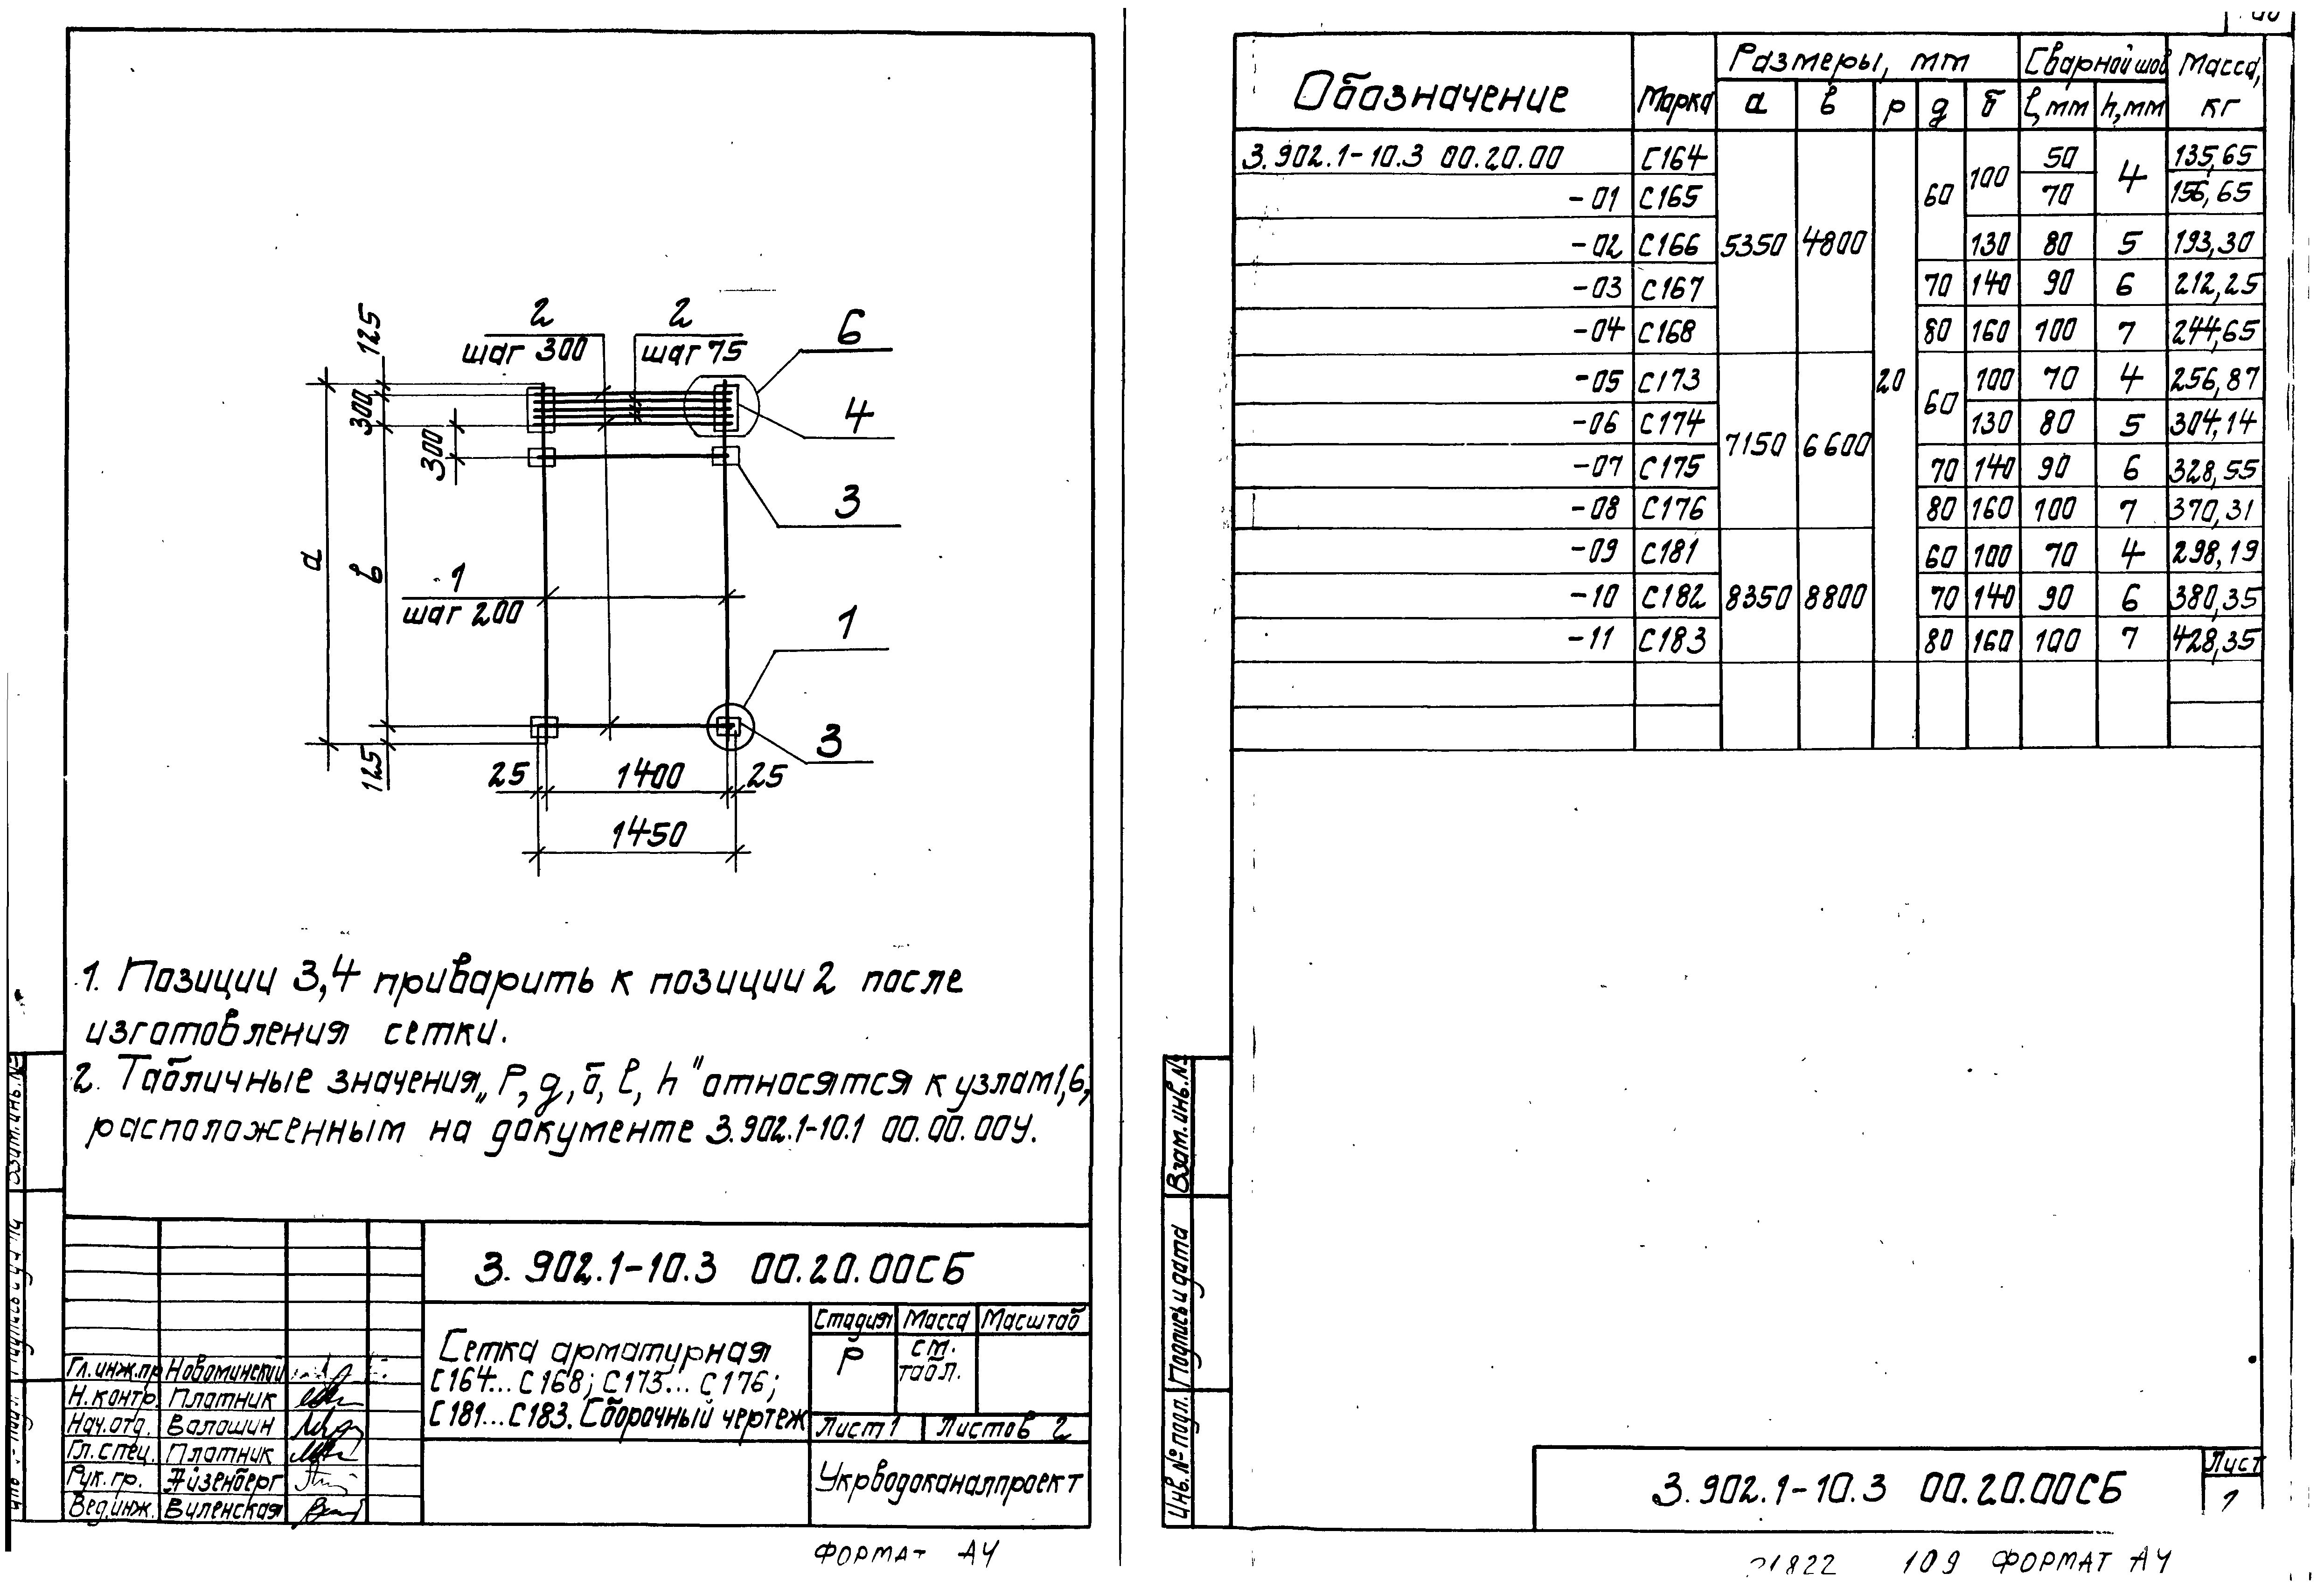 2
шаг 300
2
шаг 75
6
4
3
125
300
300
а
в
1
шаг 200
1
3
125
25
1400
25
1450
1. Позиции 3,4 приварить к позиции 2 после
изготовления сетки.
2. Табличные значения „Р, д, б, l, h" относятся к узлам 1,6,
расположенным на документе 3.902.1-10.1 00.00.00У.
3.902.1-10.3 00.20.00СБ
Сетка арматурная
С164... С168; С173... С176;
С181... С183. Сборочный чертеж
Стадия Масса Масштаб
Р см. табл.
Лист 1 Листов 2
Укрводоканалпроект
Гл.инж.пр Новоминский
Н.контр. Плотник
Нач.отд. Волошин
Гл.спец. Плотник
Рук.гр. Айзенберг
Вед.инж. Виленская
Взам.инв.№
ФОРМАТ А4
Обозначение Марка Размеры, мм Сварной шов Масса, кг
а в р д б l,мм h,мм
3.902.1-10.3 00.20.00 С164 5350 4800 20 60 100 50 4 135,65
-01 С165 70 156,65
-02 С166 130 80 5 193,30
-03 С167 70 140 90 6 212,25
-04 С168 80 160 100 7 244,65
-05 С173 7150 6600 60 100 70 4 256,87
-06 С174 130 80 5 304,14
-07 С175 70 140 90 6 328,55
-08 С176 80 160 100 7 370,31
-09 С181 8350 8800 60 100 70 4 298,19
-10 С182 70 140 90 6 380,35
-11 С183 80 160 100 7 428,35
Взам.инв.№
Подпись и дата
Инв.№ подл.
3.902.1-10.3 00.20.00СБ
Лист
1822 109 ФОРМАТ А4